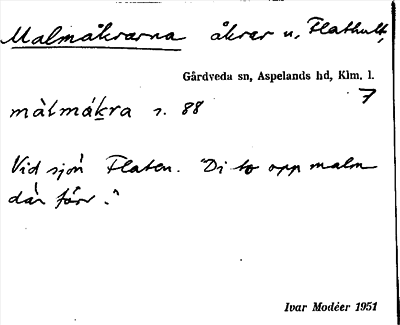 Malmåkrarna åkrar u. Flathult,
Gårdveda sn, Aspelands hd, Klm. l.
7
màlmák̲ra s. 88
Vid sjön Flaten. "Di to opp malm
där förr."
Ivar Modéer 1951